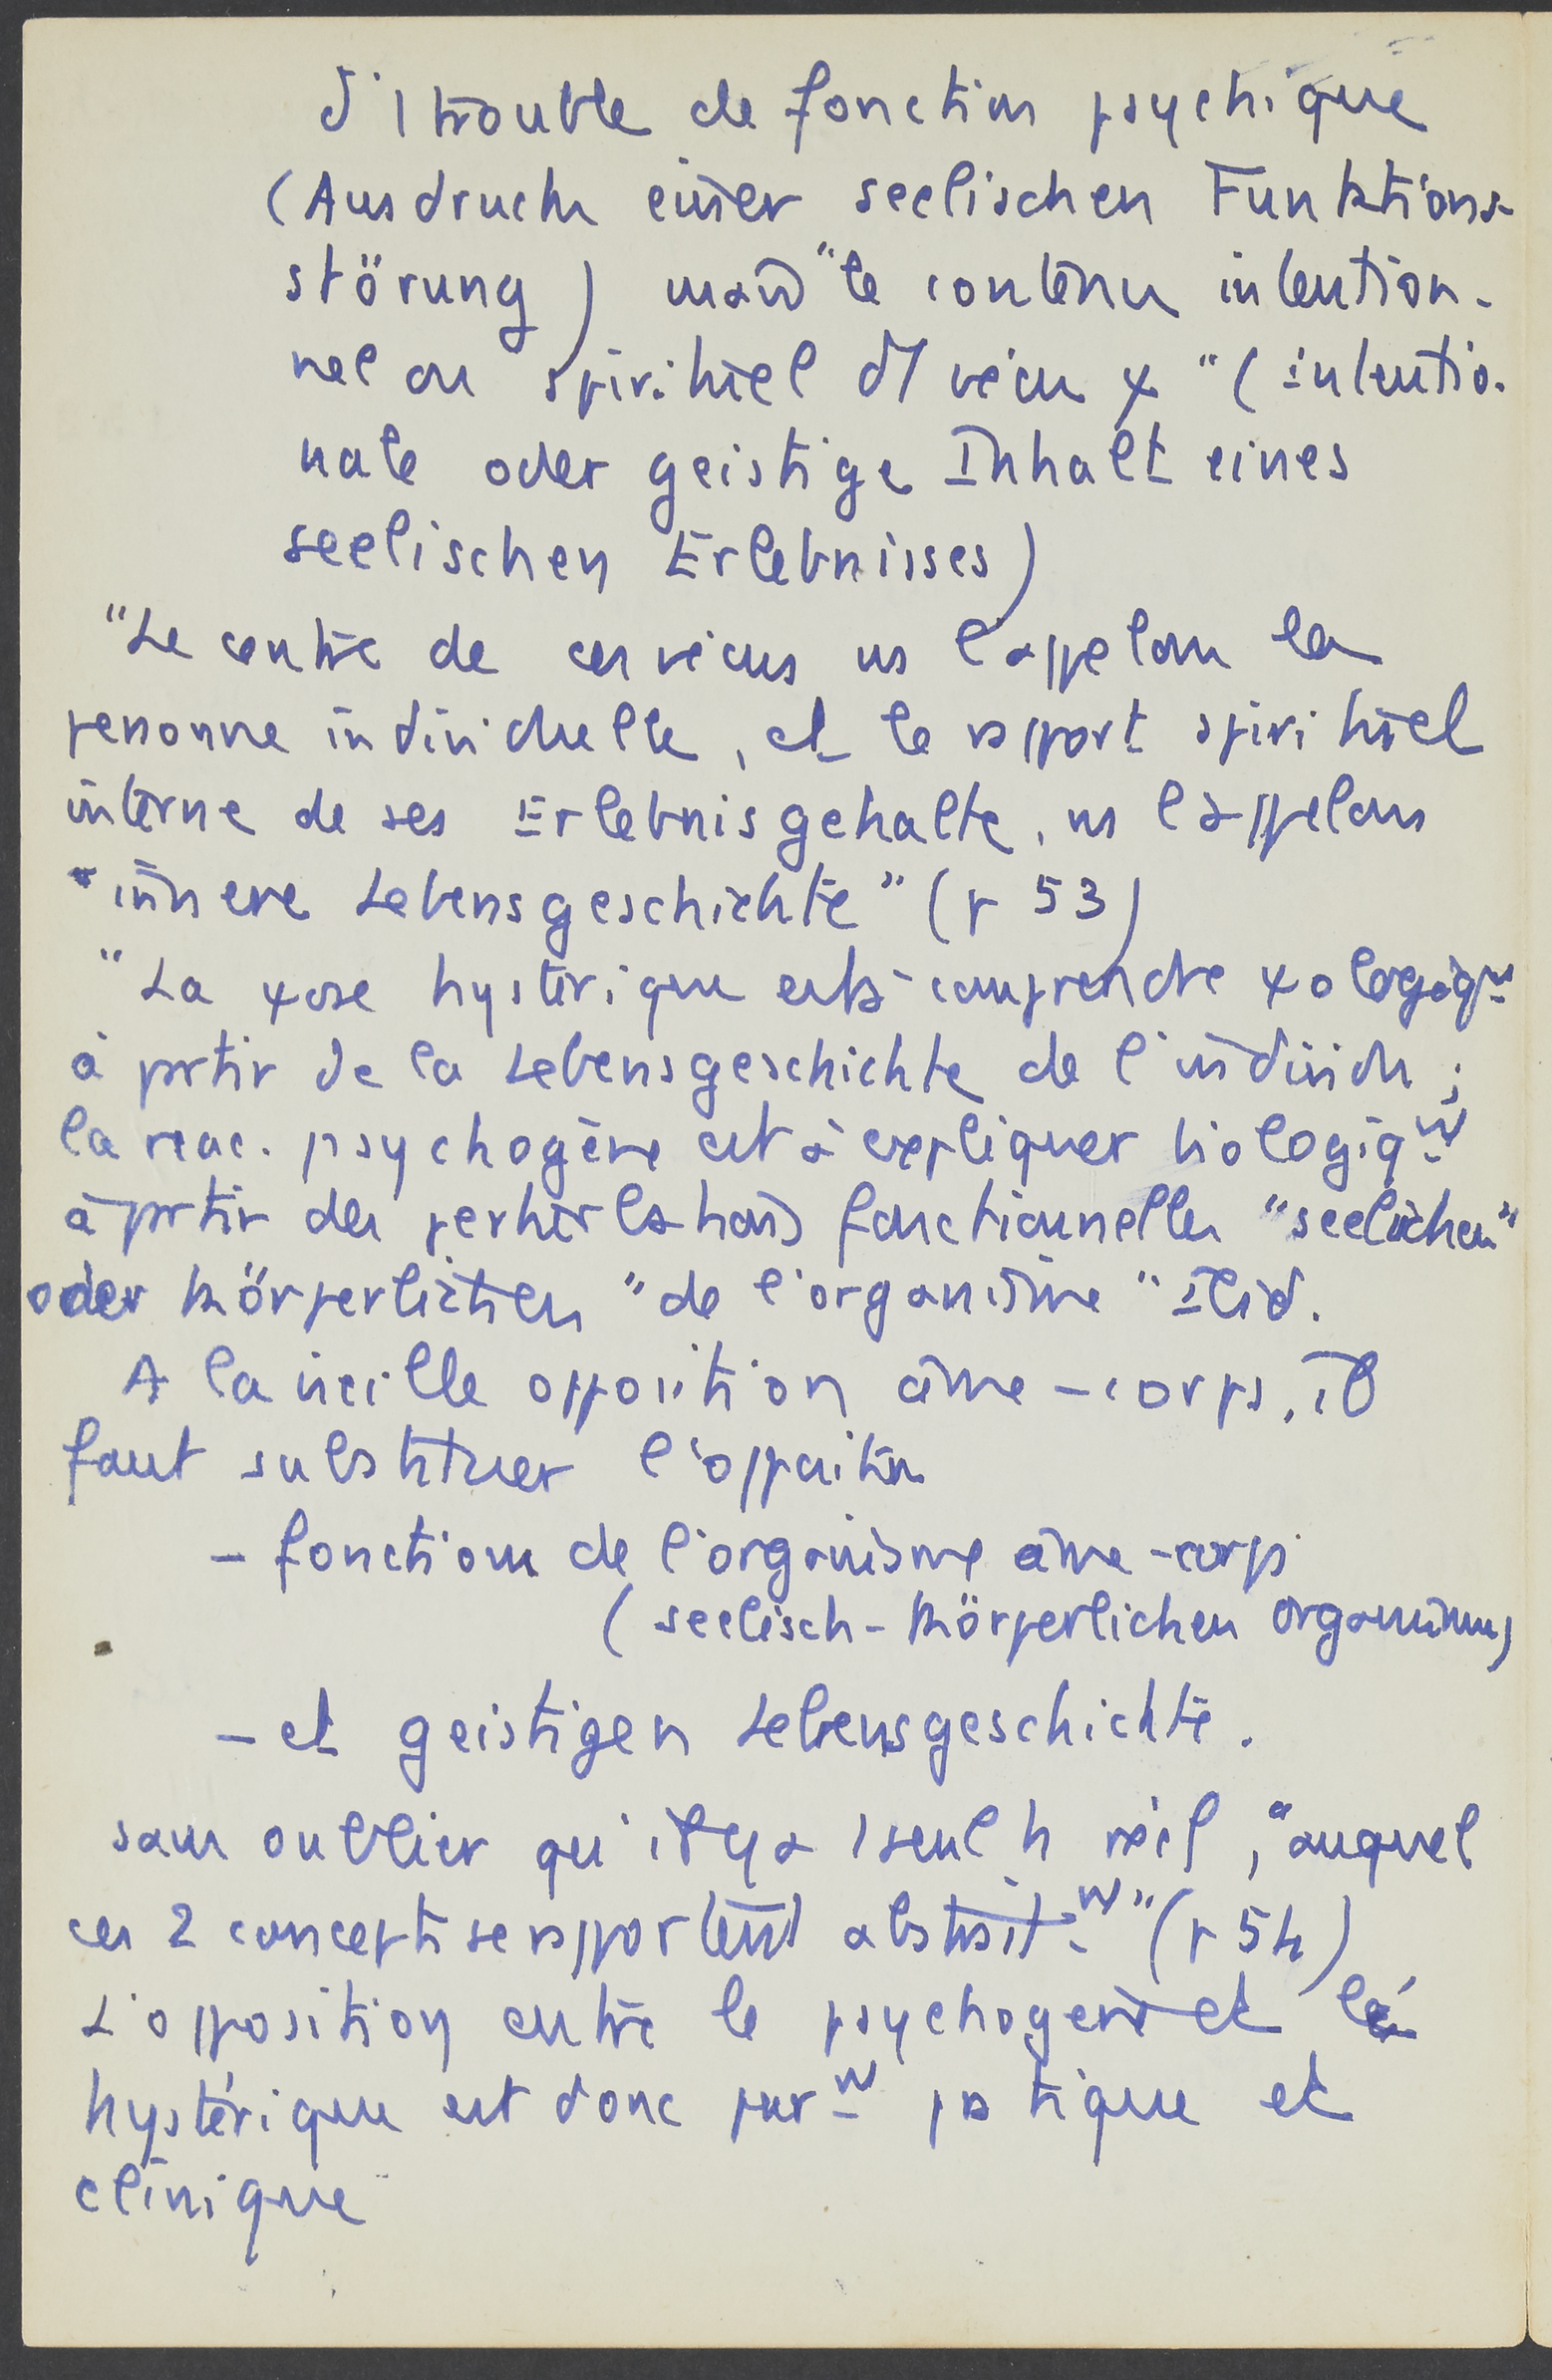 d'1 trouble de fonction psychique
(Ausdruck einer seelischen Funktions-
störung) mais "le contenu intention-
nel ou spirituel d'1 vécu ψ" (intentio-
nale oder geistige Inhalt eines
seelischen Erlebnisses)
"Le centre de ces vécus ns l'appelons la
personne individuelle, et le rapport spirituel
interne de ses Erlebnisgehalte, ns l'appelons
"innere Lebensgeschichte" (p 53)
"La ψose hystérique est à comprendre ψologiqt
à partir de la Lebensgeschichte de l'individu ;
la réac. psychogène est à expliquer biologiqt
à partir des perturbations fonctionnelles "seelischen"
oder körperlichen "de l'organisme" Ibid.
A la vieille opposition âme-corps, il
faut substituer l'opposition
- fonctions de l'organisme âme-corps
(seelisch-körperlichen Organismus)
- et geistigen Lebensgeschichte.
sans oublier qu'il y a 1 seul h réel, "auquel
ces 2 concepts se rapportent abstrait.t" (p 54)
L'opposition entre le psychogène et l'
hystérique est donc purt pratique et
clinique